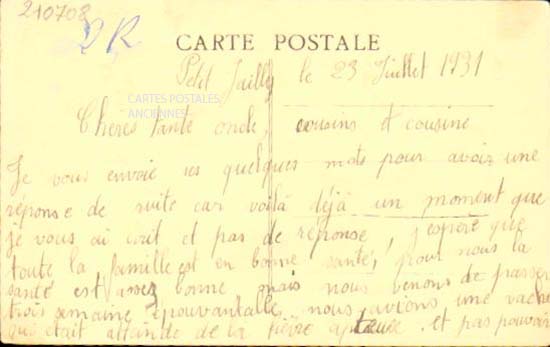 210708
2R
CARTE POSTALE
Petit Jailly le 23 Juillet 1931
CARTES POSTALES
ANCIENNES
Cheres tante oncle, cousins et cousine
Je vous envoie ses quelques mots pour avoir une
réponse de suite car voilà déjà un moment que
je vous ai écrit et pas de réponse j'espère que
toute la famille est en bonne santé, pour nous la
santé est assez bonne mais nous venons de passer
trois semaine épouvantable nous avions une vache
qui était atteinde de la fièvre apteuse et pas pouvoir